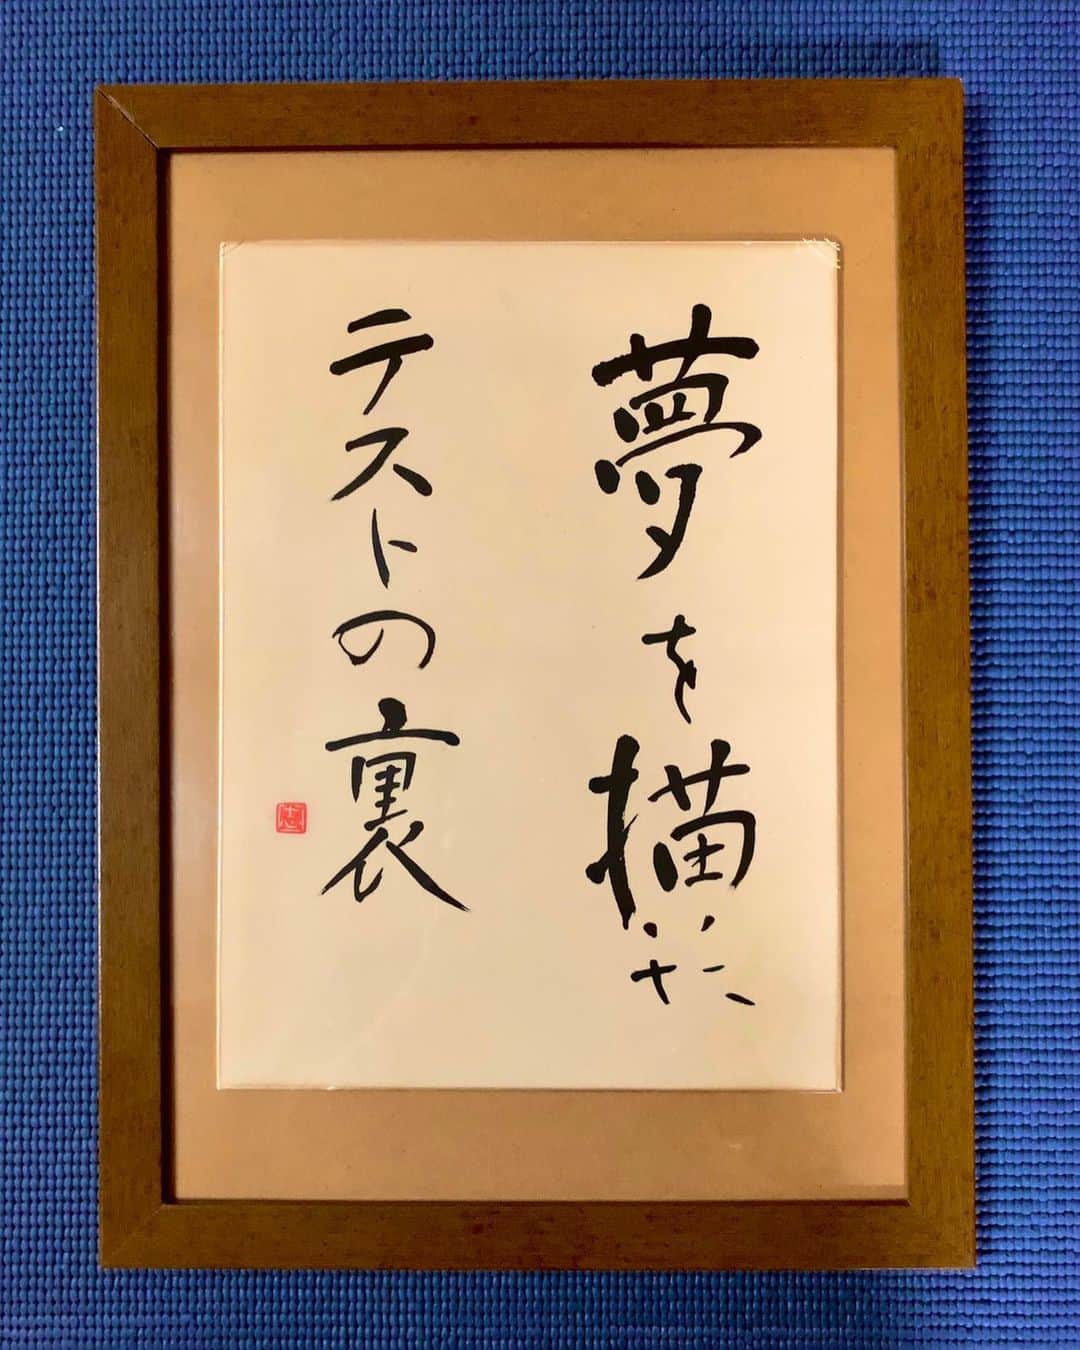 夢を描いた
テストの裏